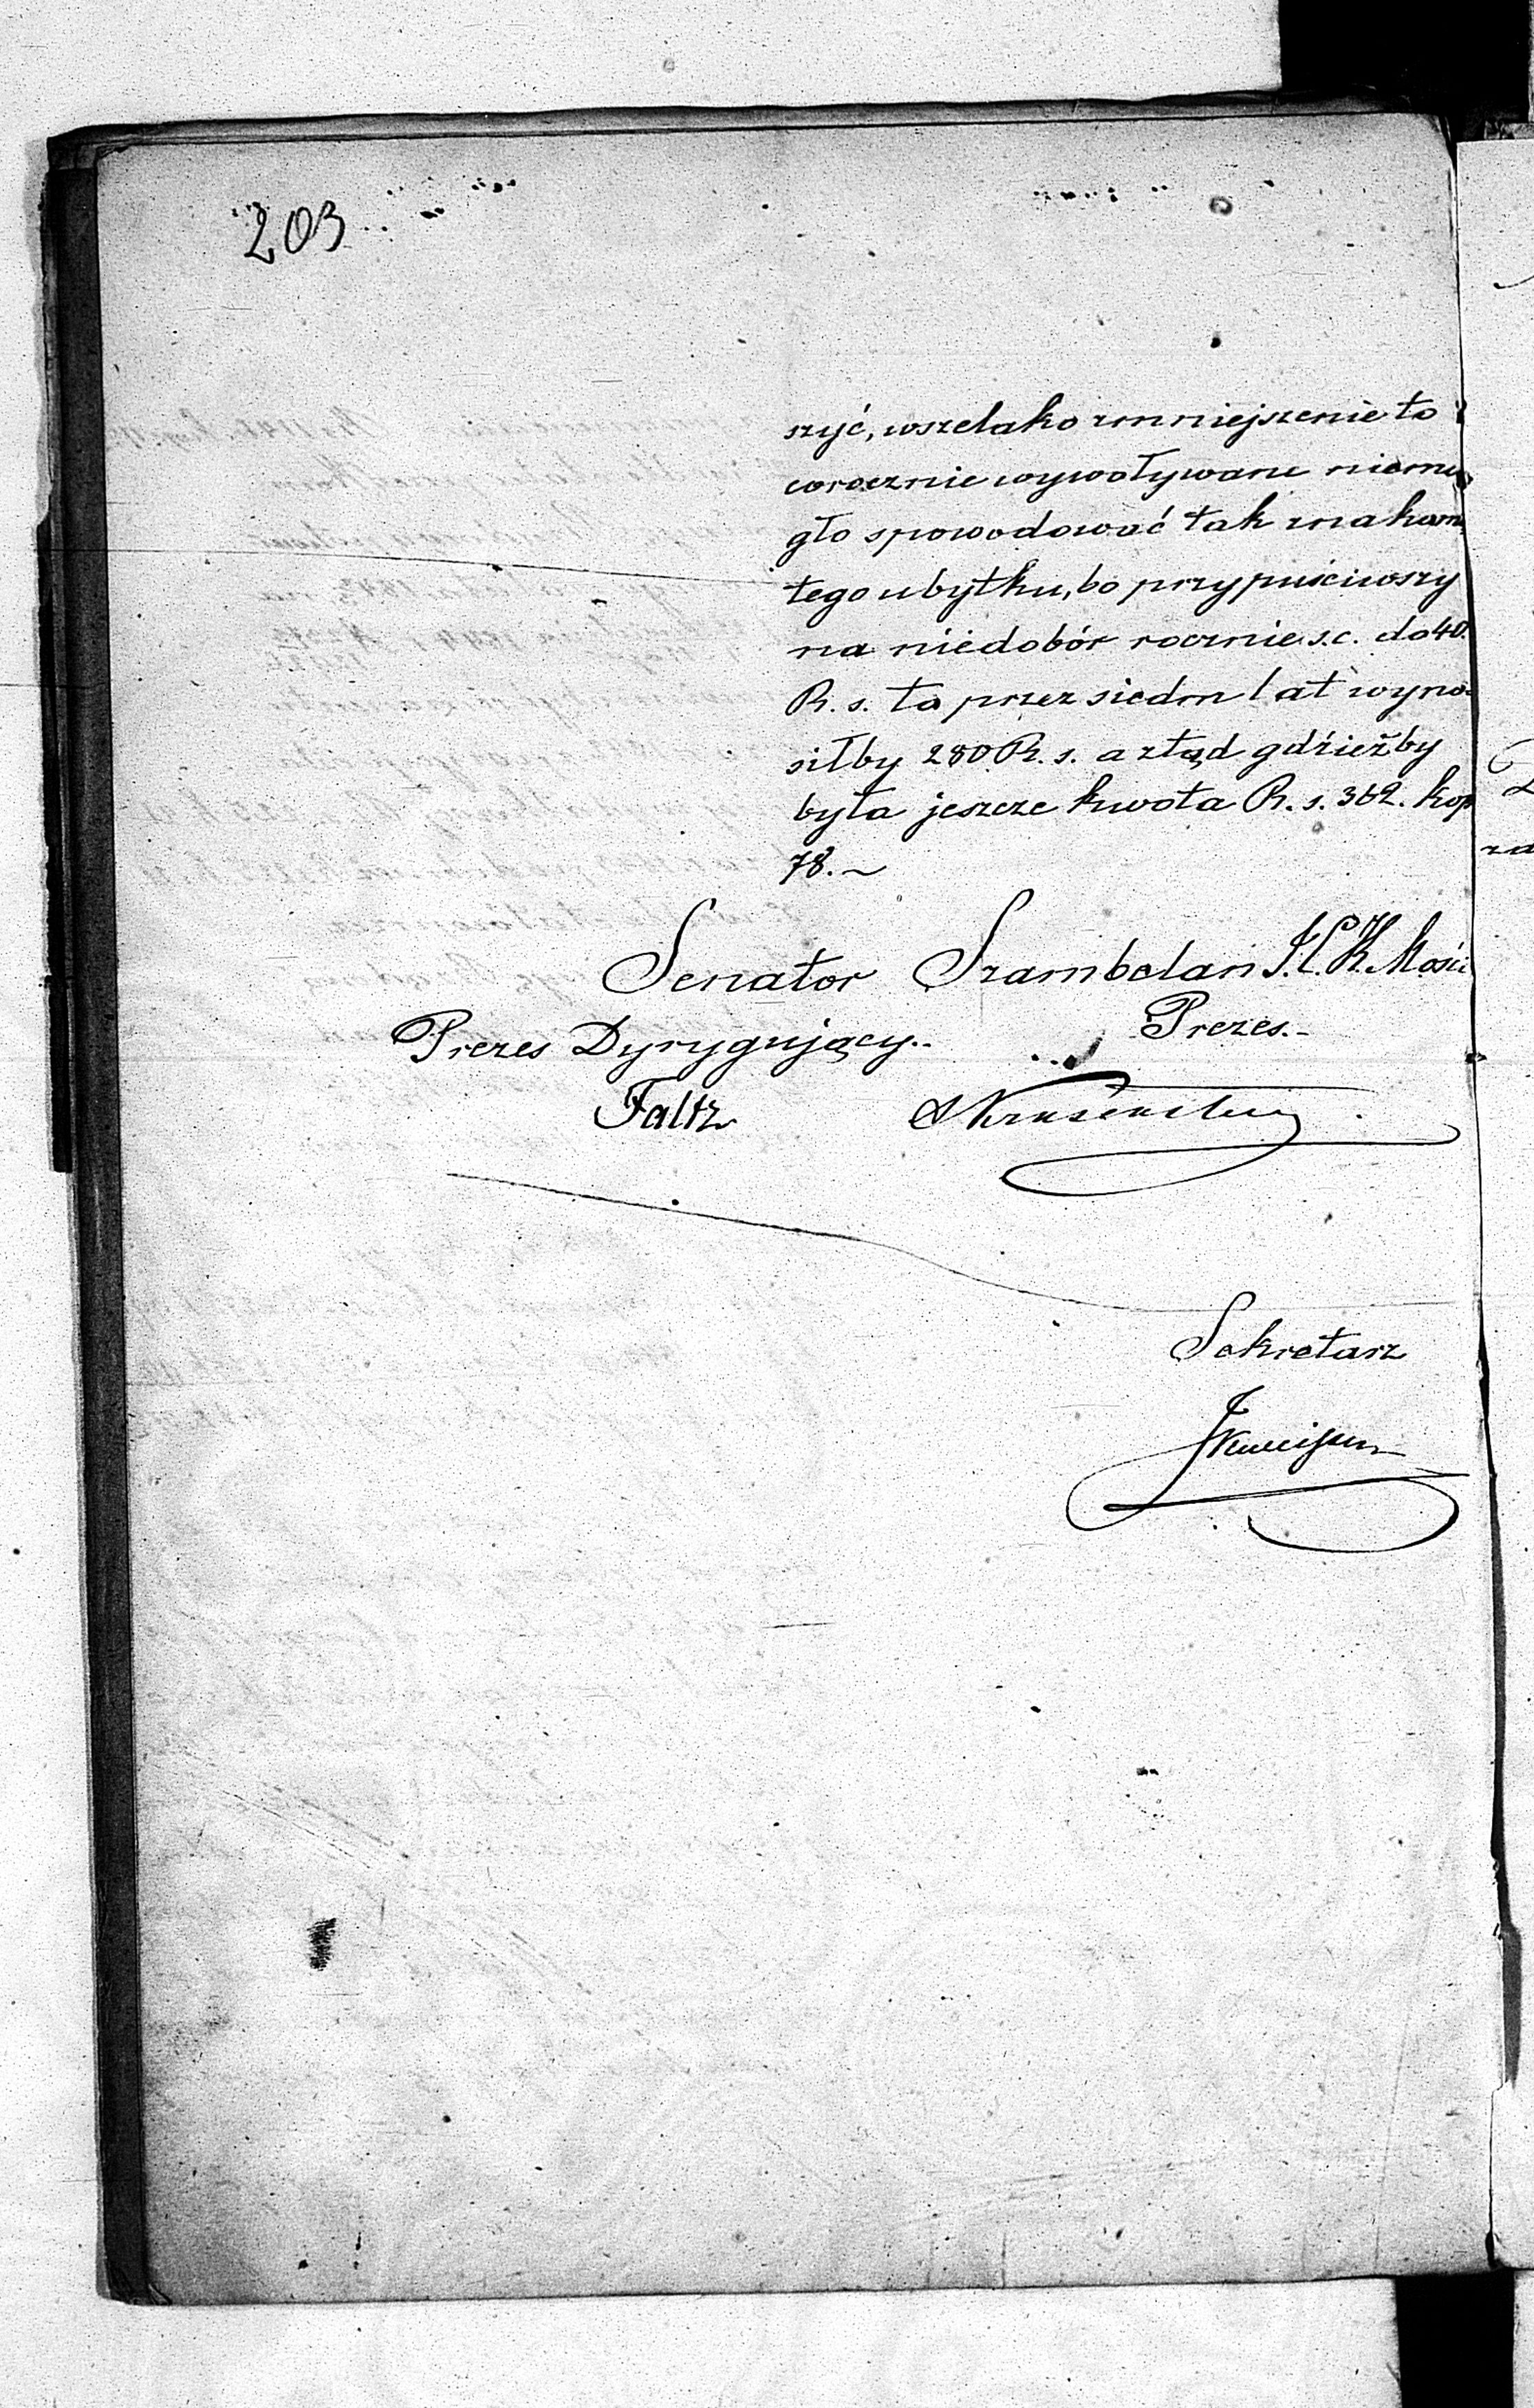 203
szyć, wszelako zmniejszenie to
corocznie wywoływane niemo
gło spowodować tak znakomi
tego ubytku, bo przypuściwszy
na niedobór rocznie s.c. do 40.
R. s. to przez siedm lat wyno
siłby 280 R. s. a ztąd gdzieżby
była jeszcze kwota R. s. 362. kop
78. ~
Senator Szambelan J. C. K. Mości
Prezes Dyrygujący.. Prezes.-
Faltz
Sekretarz